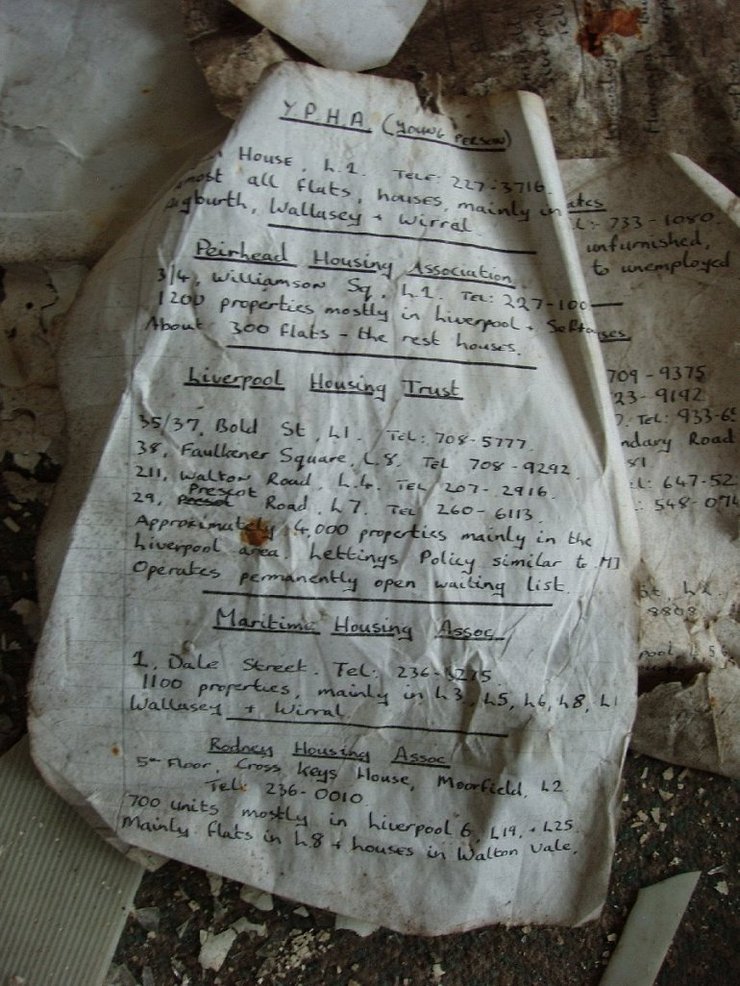 Y.P.H.A. (YOUNG PERSON)
House, L.1. TELE: 227-3716
most all flats, houses, mainly in
Aigburth, Wallasey + Wirral.
Peirhead Housing Association.
3/4, Williamson Sq, L.1. Tel: 227-100
1200 properties mostly in Liverpool +
About 300 flats - the rest houses.
Liverpool Housing Trust
35/37, Bold St, L1. Tel: 708-5777.
38, Faulkener Square, L.8. Tel 708-9292.
211, Walton Road, L.4. Tel 207-2916.
29, Prescot Road, L7. Tel 260-6113.
Approximately 4,000 properties mainly in the
Liverpool area. Lettings Policy similar to
Operates permanently open waiting list.
Maritime Housing Assoc.
1, Dale Street. Tel: 236-
1100 properties, mainly in L3, L5, L6, L8, L1
Wallasey + Wirral.
Rodney Housing Assoc
5th Floor, Cross Keys House, Moorfield, L2
Tel: 236-0010
700 units mostly in Liverpool 6, L19, + L25.
Mainly flats in L8 + houses in Walton Vale.
ates
L:- 733-1080
unfurnished,
to unemployed
709-9375
23-9192
7. Tel: 933-6
ndary Road
L: 647-52
: 548-074
8808